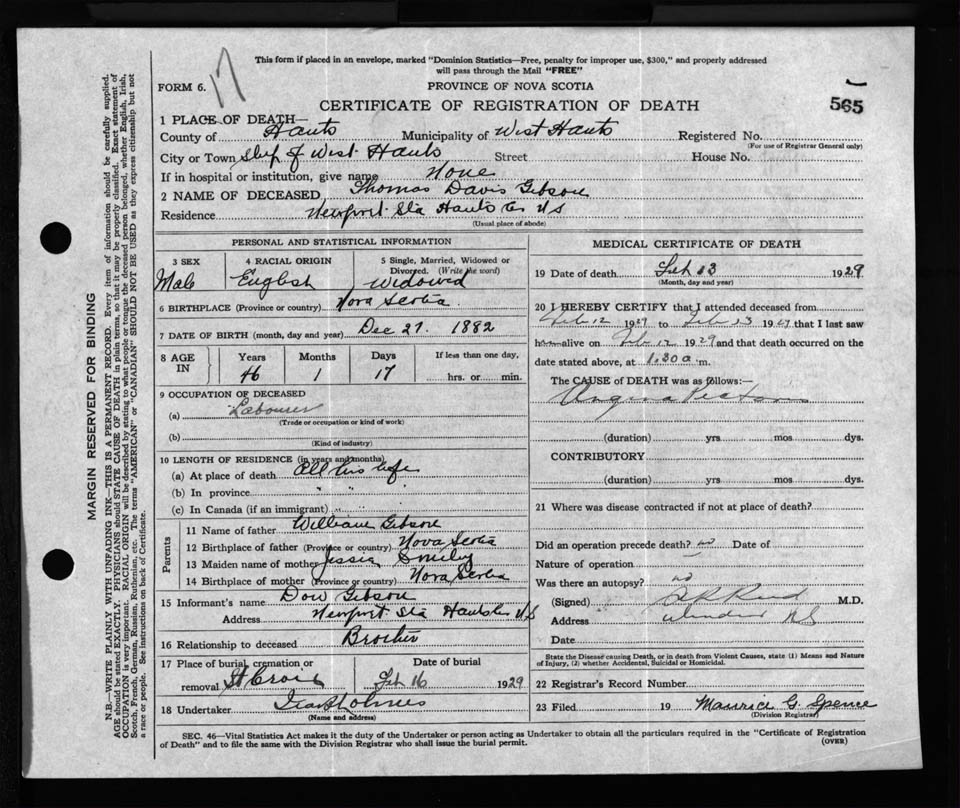 This form if placed in an envelope, marked "Dominion Statistics—Free, penalty for improper use, $300," and properly addressed
will pass through the Mail "FREE"
17
FORM 6.
PROVINCE OF NOVA SCOTIA
CERTIFICATE OF REGISTRATION OF DEATH
565
1 PLACE OF DEATH—
County of Hants Municipality of West Hants Registered No.
(For use of Registrar General only)
City or Town of West Hants Street House No.
If in hospital or institution, give name None
2 NAME OF DECEASED Thomas Davis Gibson
Residence Newport Sta Hants Co NS
(Usual place of abode)
PERSONAL AND STATISTICAL INFORMATION
3 SEX 4 RACIAL ORIGIN 5 Single, Married, Widowed or
Divorced. (Write the word)
Male English Widowed
6 BIRTHPLACE (Province or country) Nova Scotia
7 DATE OF BIRTH (month, day and year) Dec 27. 1882
8 AGE IN Years Months Days If less than one day,
46 1 17 hrs. or min.
9 OCCUPATION OF DECEASED
(a) Labourer
(Trade or occupation or kind of work)
(b)
(Kind of industry)
10 LENGTH OF RESIDENCE (in years and months)
(a) At place of death All his life
(b) In province " "
(c) In Canada (if an immigrant) " "
Parents
11 Name of father William Gibson
12 Birthplace of father (Province or country) Nova Scotia
13 Maiden name of mother Jessie Smiley
14 Birthplace of mother (Province or country) Nova Scotia
15 Informant's name Dow Gibson
Address Newport Sta Hants Co NS
16 Relationship to deceased Brother
17 Place of burial, cremation or
removal St Croix
Date of burial
Feb 16 1929
18 Undertaker Ira Holmes
(Name and address)
MEDICAL CERTIFICATE OF DEATH
19 Date of death Feb 13 1929
(Month, day and year)
20 I HEREBY CERTIFY that I attended deceased from
Feb 12 1929 to Feb 13 1929 that I last saw
him alive on Feb 12 1929 and that death occurred on the
date stated above, at 1.30 a. m.
The CAUSE of DEATH was as follows:—
Angina Pectoris
(duration) yrs. mos. dys.
CONTRIBUTORY
(duration) yrs. mos. dys.
21 Where was disease contracted if not at place of death?
Did an operation precede death? no Date of
Nature of operation
Was there an autopsy? no
(Signed) Reid M.D.
Address Windsor NS
Date
State the Disease causing Death, or in death from Violent Causes, state (1) Means and Nature
of Injury, (2) whether Accidental, Suicidal or Homicidal.
22 Registrar's Record Number
23 Filed 19 Maurice G. Spence
(Division Registrar)
SEC. 46—Vital Statistics Act makes it the duty of the Undertaker or person acting as Undertaker to obtain all the particulars required in the "Certificate of Registration
of Death" and to file the same with the Division Registrar who shall issue the burial permit.
(OVER)
MARGIN RESERVED FOR BINDING
N.B.—WRITE PLAINLY WITH UNFADING INK—THIS IS A PERMANENT RECORD. Every item of information should be carefully supplied.
AGE should be stated EXACTLY. PHYSICIANS should STATE CAUSE OF DEATH in plain terms so that it may be properly classified. Exact statement of
OCCUPATION is very important. RACIAL ORIGIN will be described by stating to what people or tongue the deceased person belonged, whether English, Irish,
Scotch, French, German, Russian, Ruthenian, etc. The terms "AMERICAN" or "CANADIAN" SHOULD NOT BE USED as they express citizenship but not
a race or people. See instructions on back of Certificate.